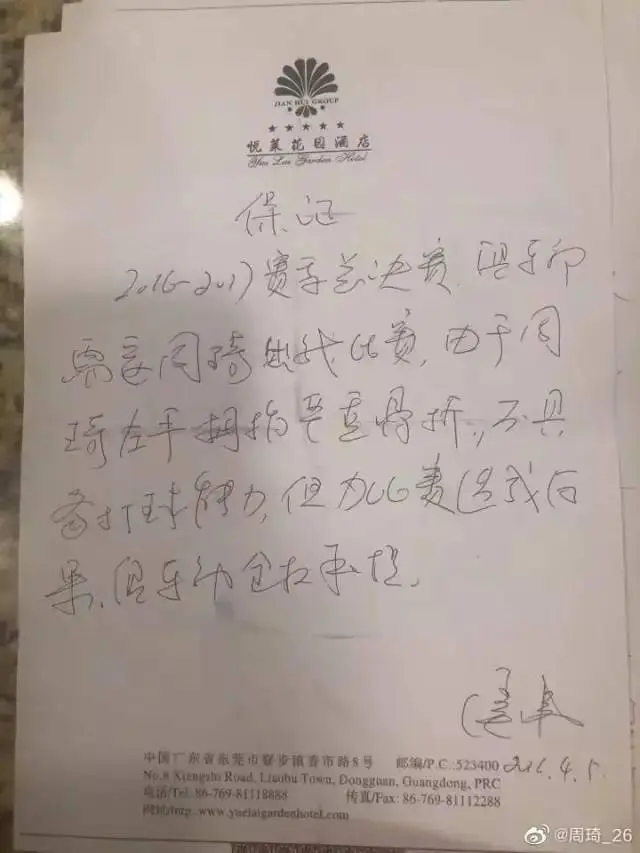 JIAN HUI GROUP
悦莱花园酒店
Yue Lai Garden Hotel
保证
2016-2017赛季总决赛.俱乐部
需要周琦出战比赛,由于周
琦左手拇指严重骨折,不具
备打球能力,但为比赛造成后
果,俱乐部全权承担.
中国广东省东莞市寮步镇香市路8号 邮编/P.C.:523400
No.8 Xiangshi Road, Liaobu Town, Dongguan, Guangdong, PRC
电话/Tel: 86-769-81118888 传真/Fax: 86-769-81112288
网址/http: www.yuelaigardenhotel.com
@周琦_26